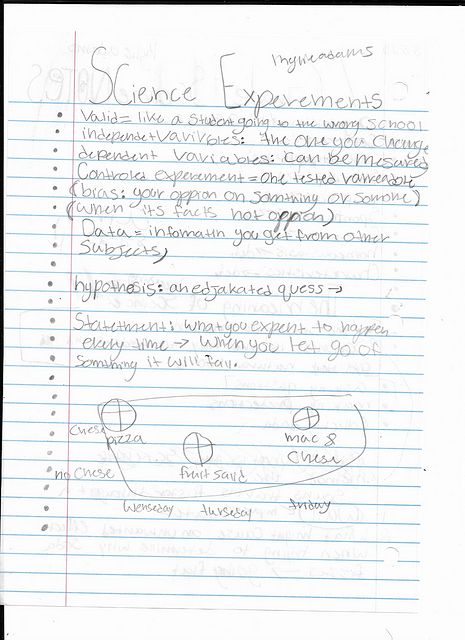 Thyrieadams
SCience Experements
Valid = like a Student going to the wrong School
independet Varivbles: the one you Change
dependent Variables: Can be mesared
Controled experement = one tested vareable
(bias: your oppion on Somthing or Somone)
(when its facts not oppion)
Data = infomatin you get from other
Subjects,
hypothesis: an edjakated guess →
Statetment: what you expent to happen
every time → When you let go of
Somthing it will fall.
Chese
pizza
mac &
Chese
no Chese
fruit Salid
Wenseday turseday friday